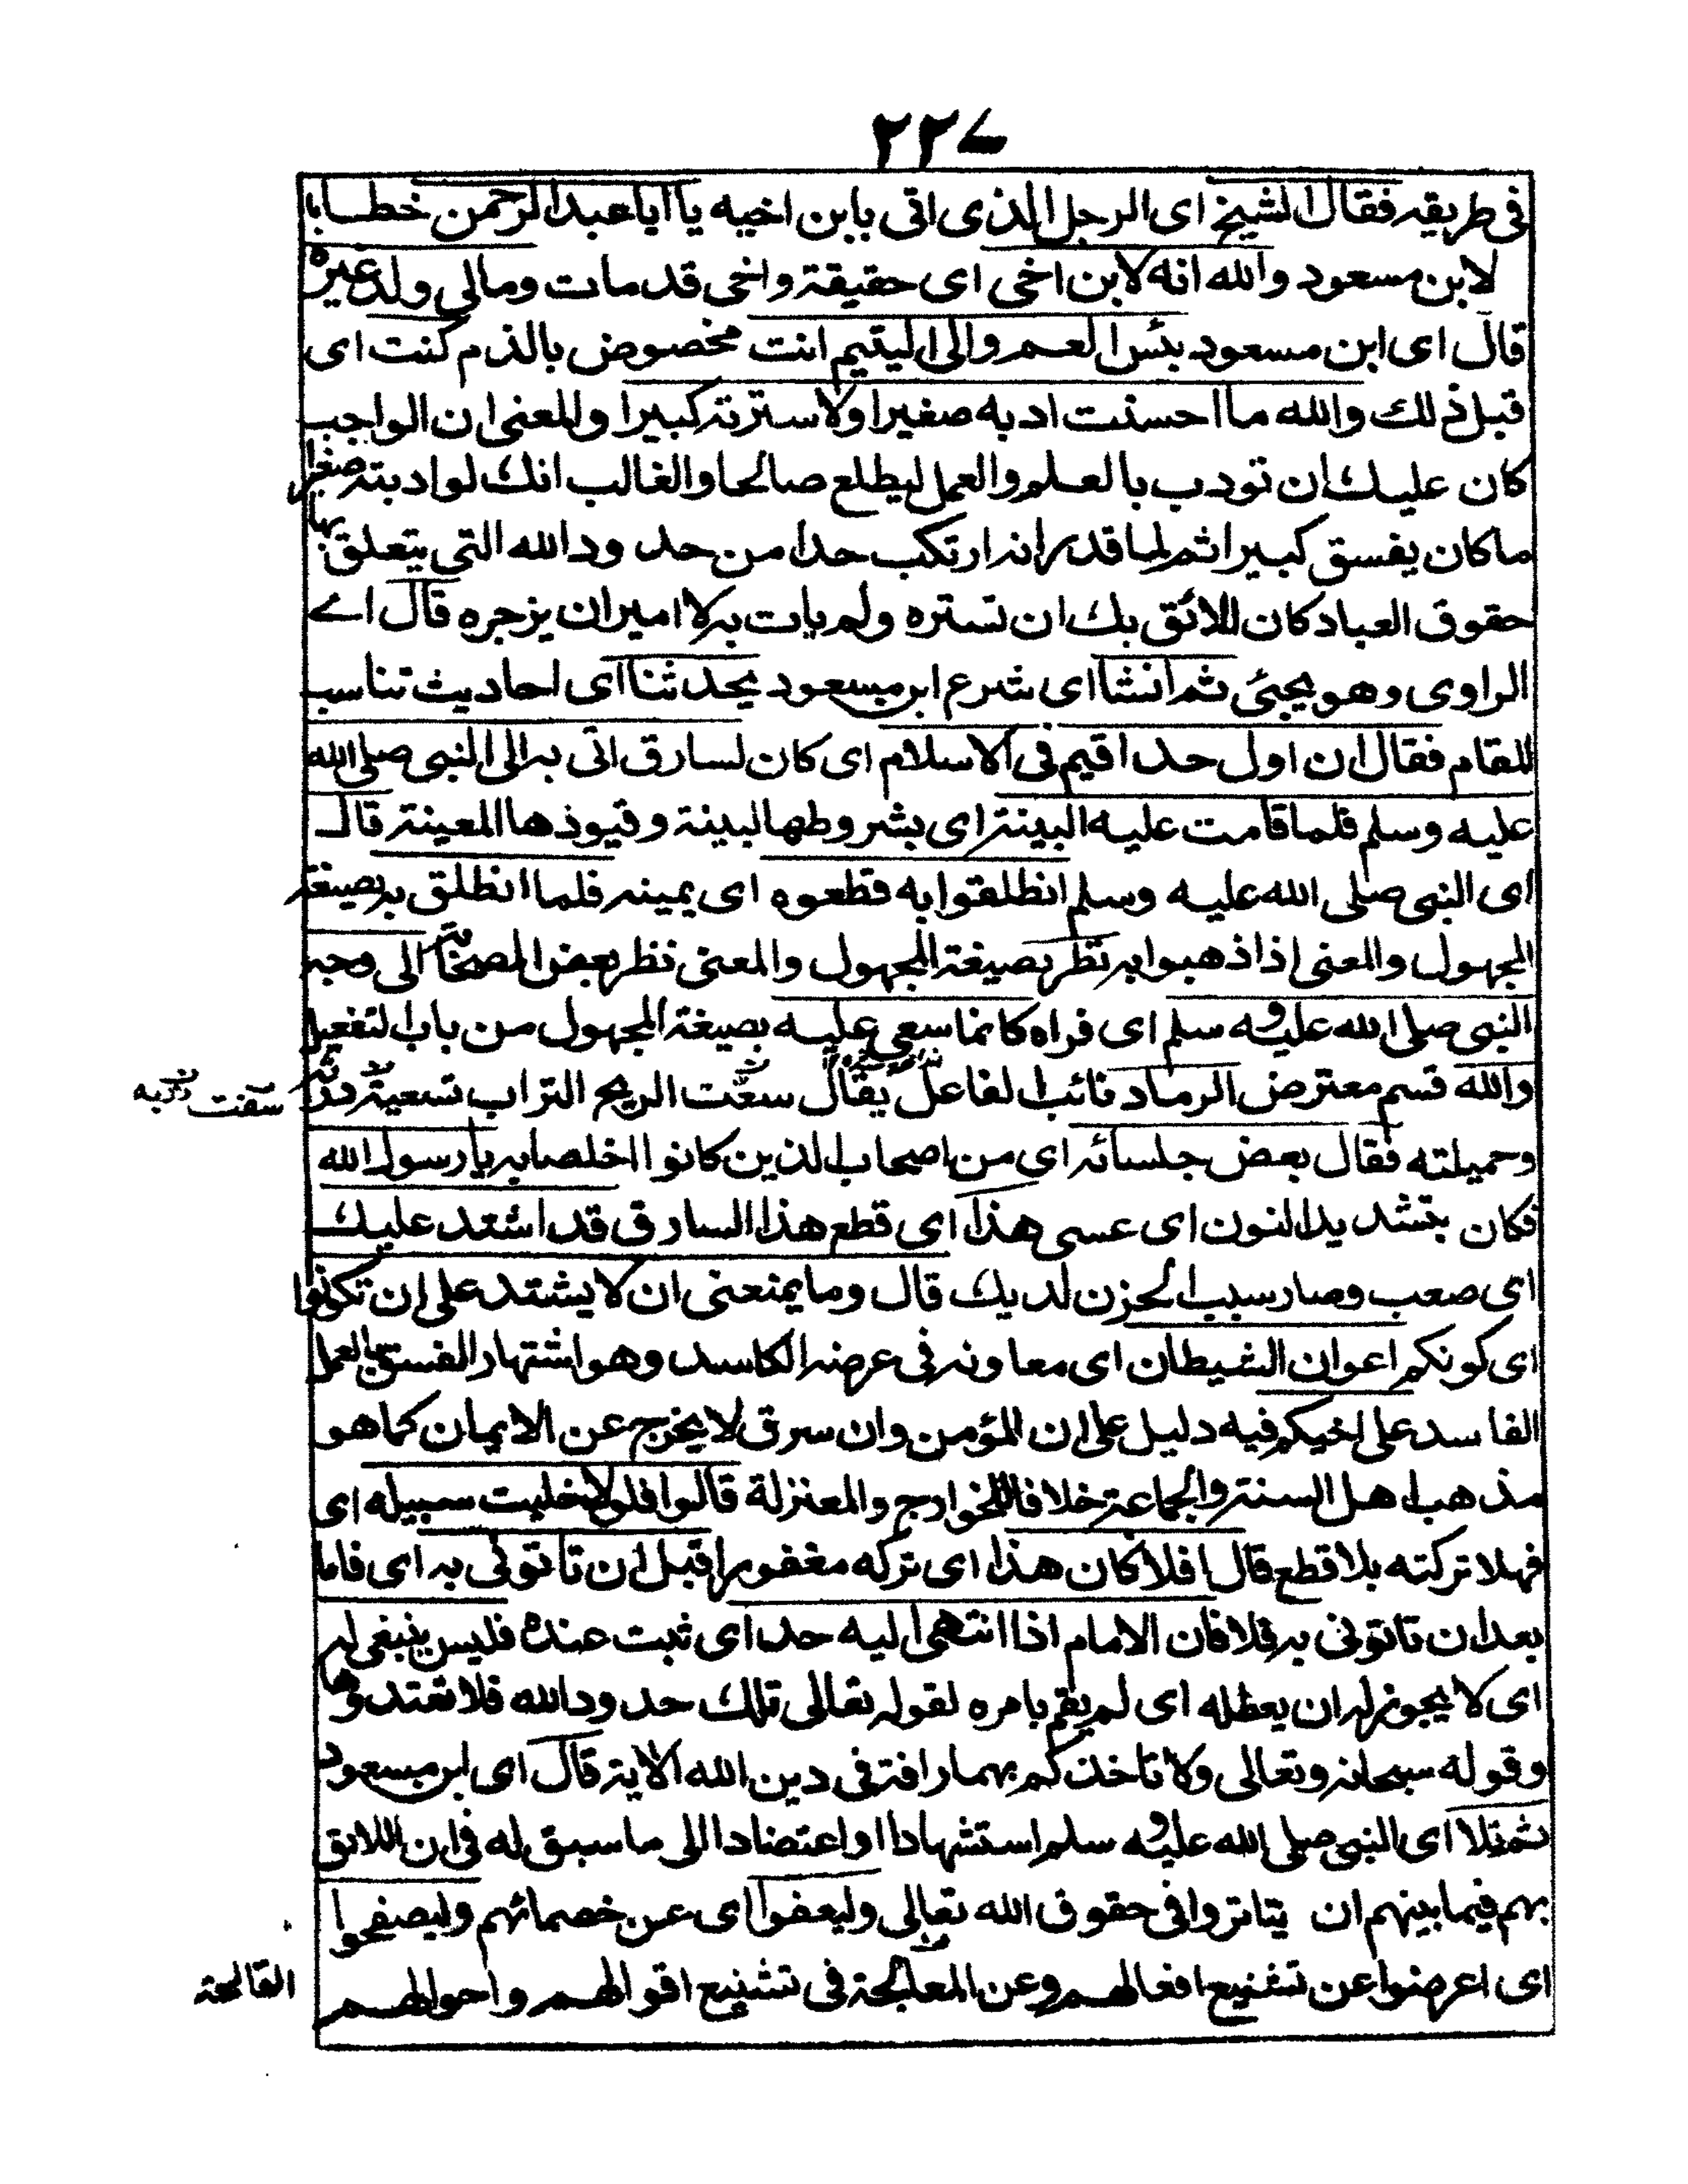 ٢٢٧
في طريقه فقال الشيخ اى الرجل الذى اتى بابن اخيه يا ابا عبد الرحمن خطابا
لابن مسعود والله انه لابن اخى اى حقيقة واخى قد مات ومالى ولد غيره
قال اى ابن مسعود بئس العم والى اليتيم انت مخصوص بالذم كنت اى
قبل ذلك والله ما احسنت ادبه صغيرا ولا سترته كبيرا والمعنى ان الواجب
كان عليك ان تودب بالعلم والعمل ليطلع صالحا والغالب انك لو ادبته صغيرا
ما كان يفسق كبيرا ثم لما قدر انه ارتكب حدا من حدود الله التى يتعلق بها
حقوق العباد كان اللائق بك ان تستره ولم يات به لا اميران يزجره قال اے
الراوى وهو يحيىٰ ثم انشا اى شرع ابن مسعود يحدثنا اى احاديث تناسب
للقام فقال ان اول حد اقيم فى الاسلام اى كان لسارق اتى به الى النبى صلى الله
عليه وسلم فلما قامت عليه البينة اى بشروطها البينة وقيودها المعينة قال
اى النبى صلى الله عليه وسلم انطلقوا به فقطعوه اى يمينه فلما انطلق به بصيغة
المجهول والمعنى اذا ذهبوا به نظر بصيغة المجهول والمعنى نظر بعض الصحابة الى وجه
النبى صلى الله عليه وسلم اى فراه كانما سعى عليه بصيغة المجهول من باب التفعيل
والله قسم معترض الرماد نائب الفاعل يقال سعت الريح التراب تسعية ذرته
سفت ذرته
وحميلته فقال بعض جلسائه اى من اصحاب الذين كانوا اخلصا به يا رسول الله
فكان بتشديد النون اى عسى هذا اى قطع هذا السارق قد اشتد عليك
اى صعب وصار سبب الحزن لديك قال وما يمنعنى ان لا يشتد على ان تكونوا
اى كونكم اعوان الشيطان اى معاونه فى عرضه الكاسد وهو اشتهار الفسق بالعمل
الفاسد على اخيكم فيه دليل على ان المؤمن وان سرق لا يخرج عن الايمان كما هو
مذهب اهل السنة والجماعة خلافا للخوارج والمعتزلة قالوا فلولا خليت سبيله اى
فهلا تركته بلا قطع قال افلا كان هذا اى تركه مغفورا قبل ان تاتونى به اى فاما
بعد ان تاتونى به فلا فان الامام اذا انتهى اليه حد اى ثبت عنده فليس ينبغى له
اى لا يجوز له ان يعطله اى لم يقم بامره لقوله تعالى تلك حدود الله فلا تعتدوها
وقوله سبحانه وتعالى ولا تاخذكم بهما رافة فى دين الله الاية قال اى ابن مسعود
ثم تلا اى النبى صلى الله عليه وسلم استشهادا او اعتضادا الى ما سبق له فى ان اللائق
بهم فيما بينهم ان يتاتروا فى حقوق الله تعالى وليعفوا اى عن خصمائهم وليصفحوا
اى اعرضوا عن تشنيع افعالهم وعن المعالجة فى تشنيع اقوالهم واحوالهم
القالحة